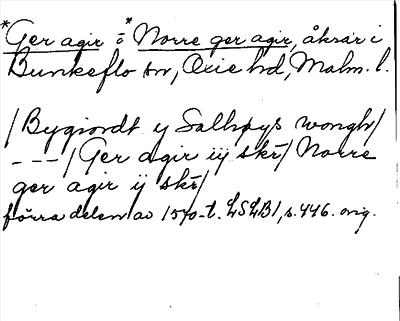 *Ger agir o *Norre ger agir, åkrar i
Bunkeflo sn, Oxie hd, Malm. l.
/Bygiordt y Salhøys wongh/
---/Ger agir iij skr/ Norre
ger agir ij skr/
förra delen av 1570-t. LSLB1, s. 446. orig.